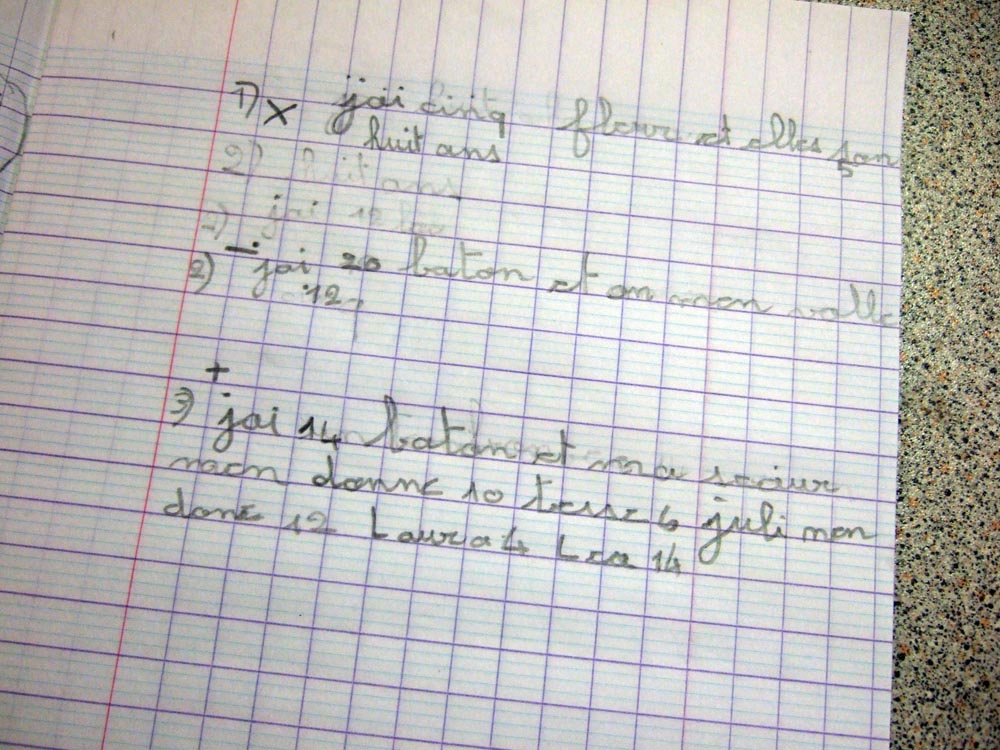 1) X jai cinq fleur et elles son
huit ans
2) huit ans
2) jai 12
2) - jai 20 baton et on mon volle
12
+
3) jai 14 baton et ma seciur
macn donne 10 tesse 6 juli mon
donc 12 Laura 4 Lea 14